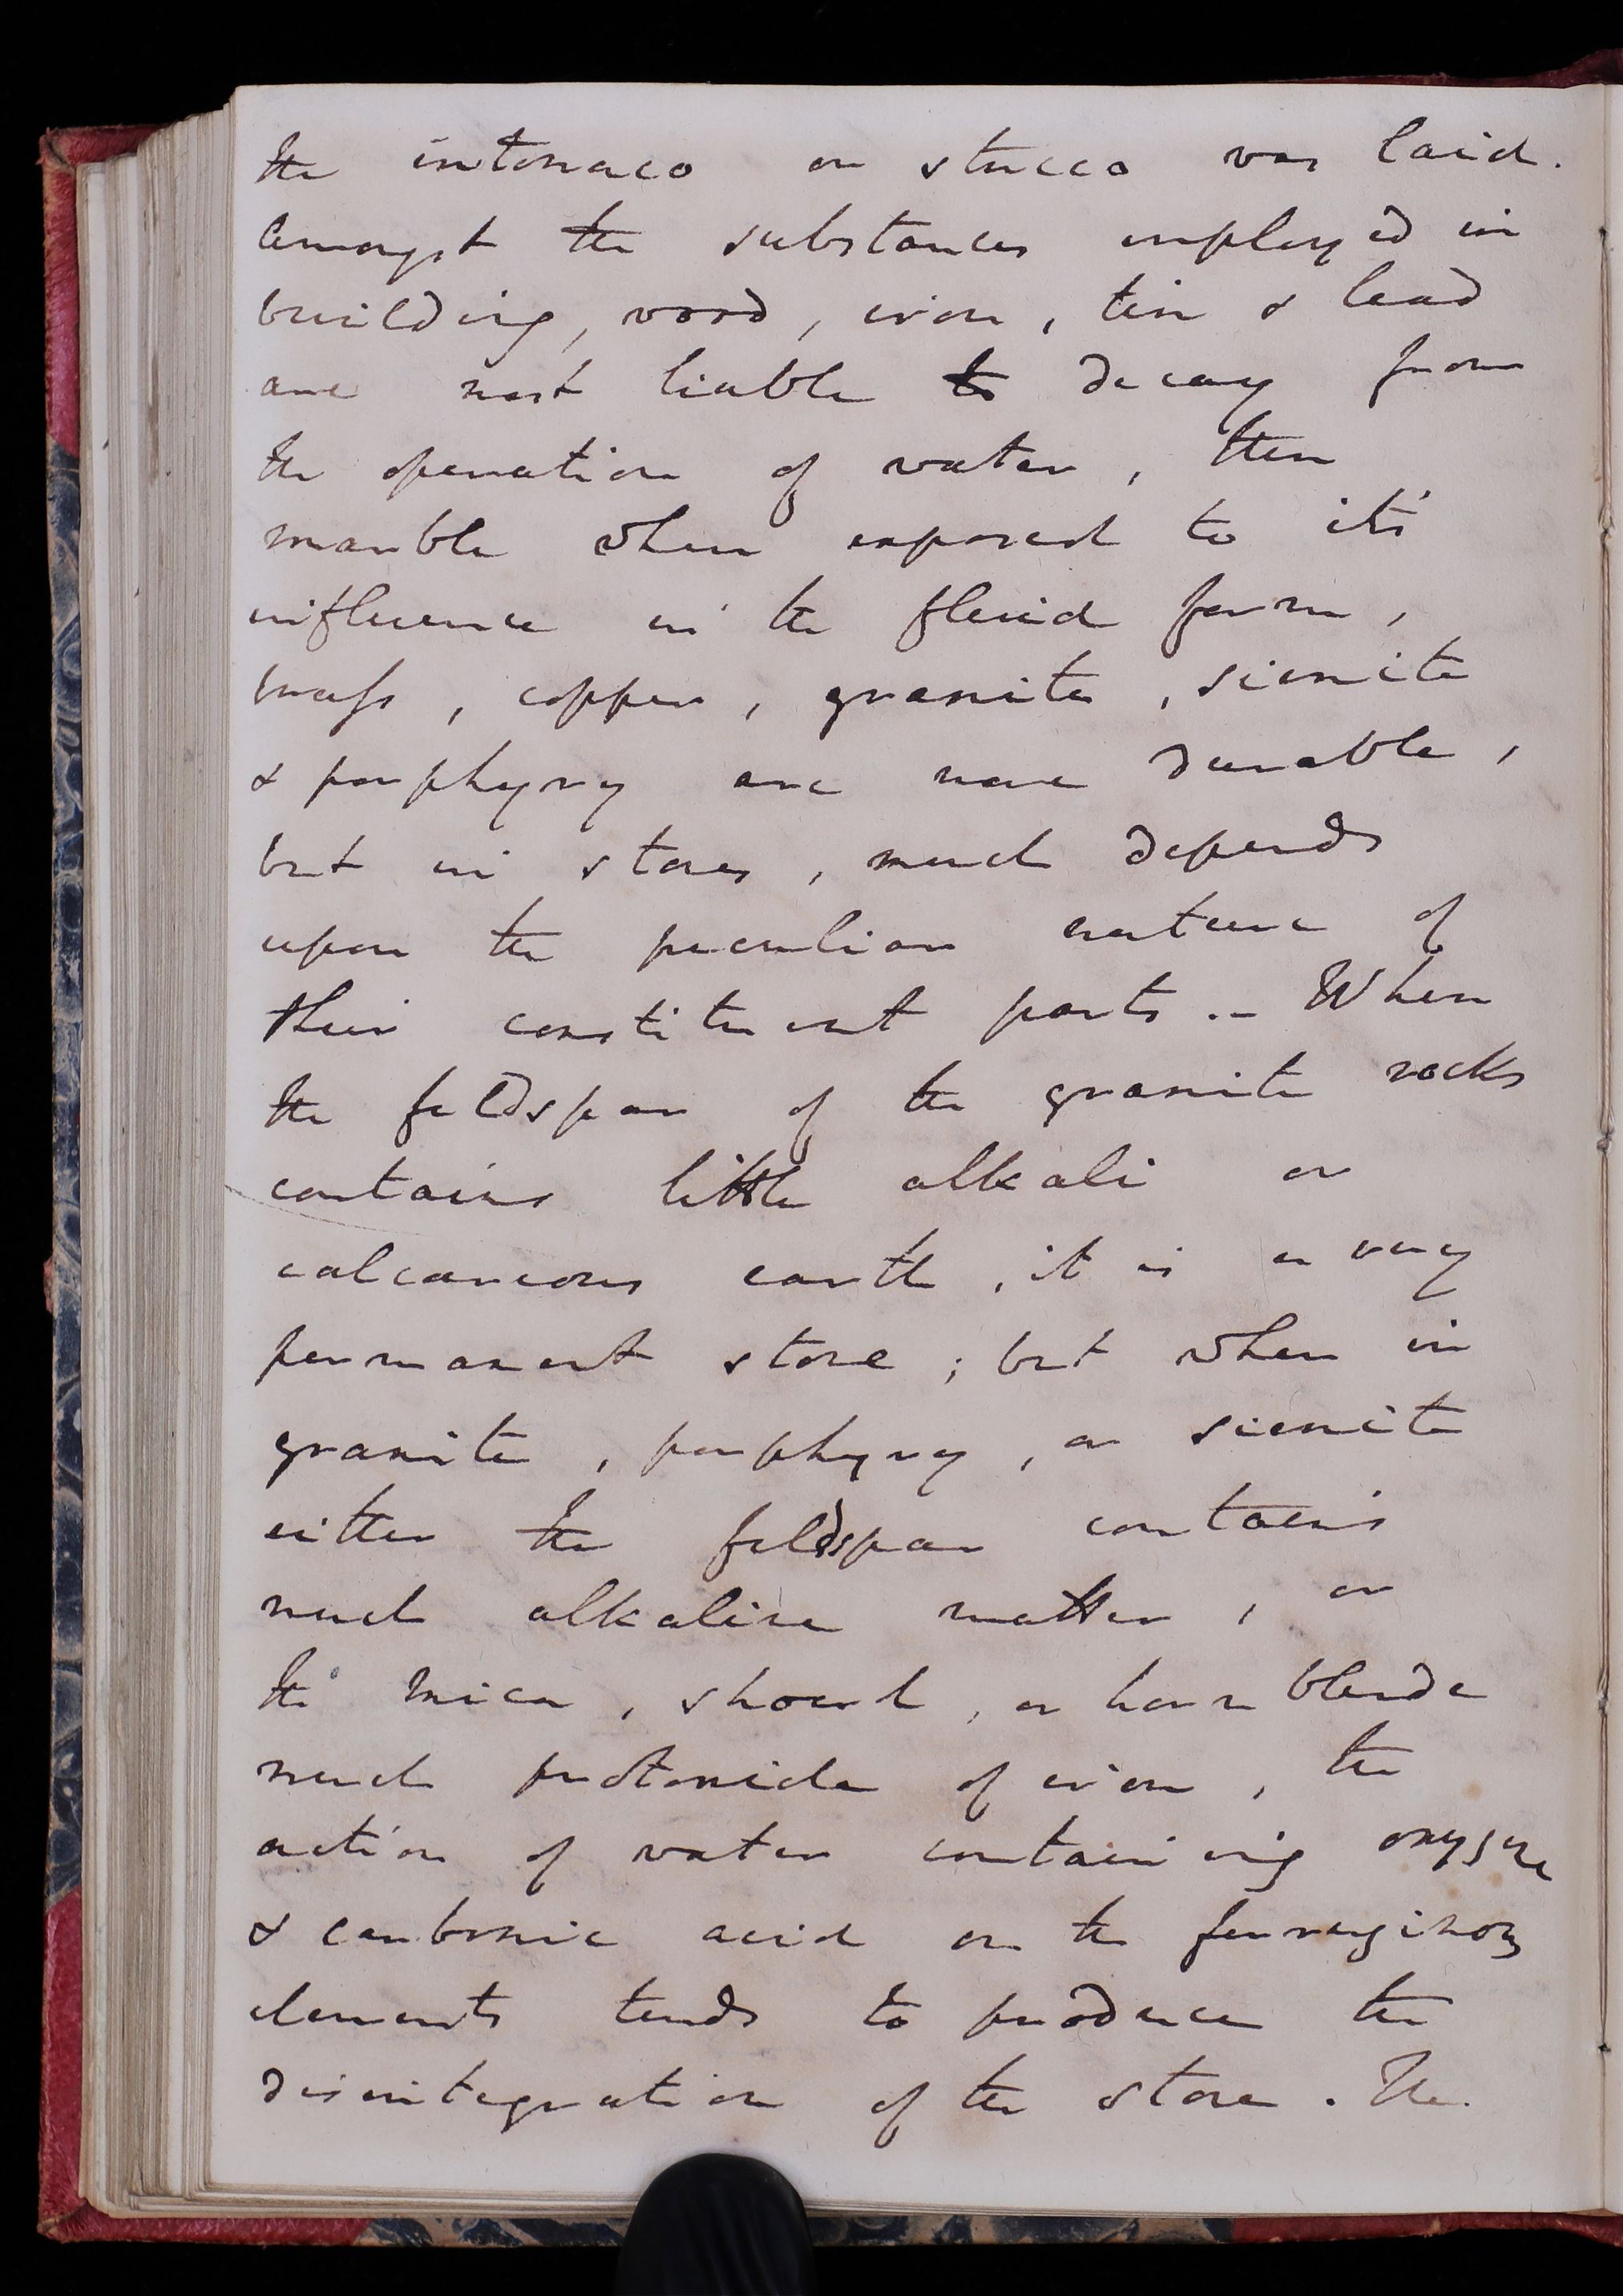 the intonaco or stucco was laid.
Amongst the substances employed in
building, wood, iron, tin & lead
are most liable to decay from
the operation of water, then
marble when exposed to it's
influence in the fluid form,
brass, copper, granite, sienite
& porphyry are more durable,
but in stones, much depends
upon the peculiar nature of
their constituent parts.– When
the feldspar of the granite rocks
contains little alkali or
calcareous earth, it is a very
permanent stone; but when in
granite, porphyry, or sienite
either the feldspar contains
much alkaline matter, or
the mica, shoerl, or hornblende
much protoxide of iron, the
action of water containing oxygene
& carbonic acid on the ferruginous
elements tends to produce the
disintegration of the stone. The